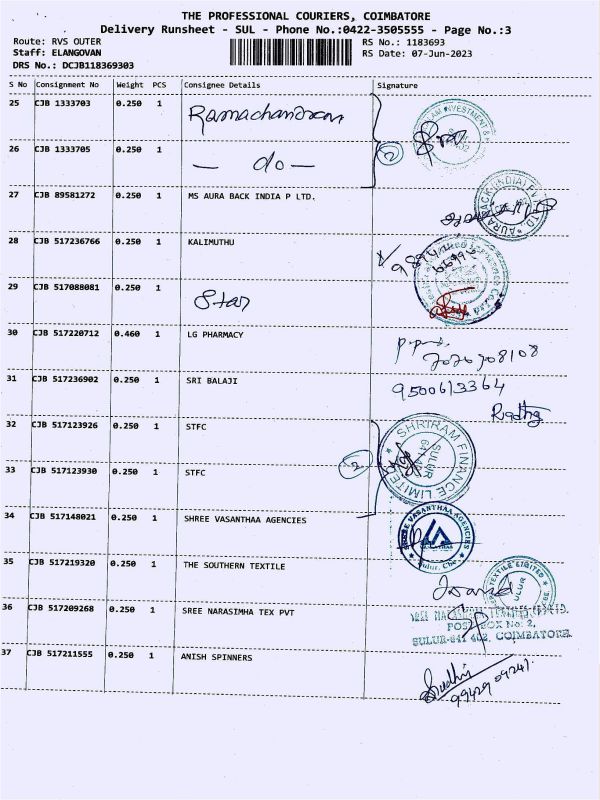 THE PROFESSIONAL COURIERS, COIMBATORE
Delivery Runsheet - SUL - Phone No.:0422-3505555 - Page No.:3
Route: RVS OUTER
Staff: ELANGOVAN
DRS No.: DCJB118369303
RS No.: 1183693
RS Date: 07-Jun-2023
S No Consignment No Weight PCS Consignee Details Signature
25 CJB 1333703 0.250 1 Ramachandran
26 CJB 1333705 0.250 1 — do — 2
27 CJB 89581272 0.250 1 MS AURA BACK INDIA P LTD.
28 CJB 517236766 0.250 1 KALIMUTHU
29 CJB 517088081 0.250 1 Star
30 CJB 517220712 0.460 1 LG PHARMACY
31 CJB 517236902 0.250 1 SRI BALAJI 9500613364
32 CJB 517123926 0.250 1 STFC
SHRIRAM FINANCE LIMITED
SULUR
33 CJB 517123930 0.250 1 STFC 2
34 CJB 517148021 0.250 1 SHREE VASANTHAA AGENCIES
SHREE VASANTHAA AGENCIES
Sulur, Cbe
35 CJB 517219320 0.250 1 THE SOUTHERN TEXTILE
TEXTILE LIMITED
SULUR
36 CJB 517209268 0.250 1 SREE NARASIMHA TEX PVT
POST BOX No: 2,
SULUR-641 402, COIMBATORE
37 CJB 517211555 0.250 1 ANISH SPINNERS
Sudhir
99429 09241.